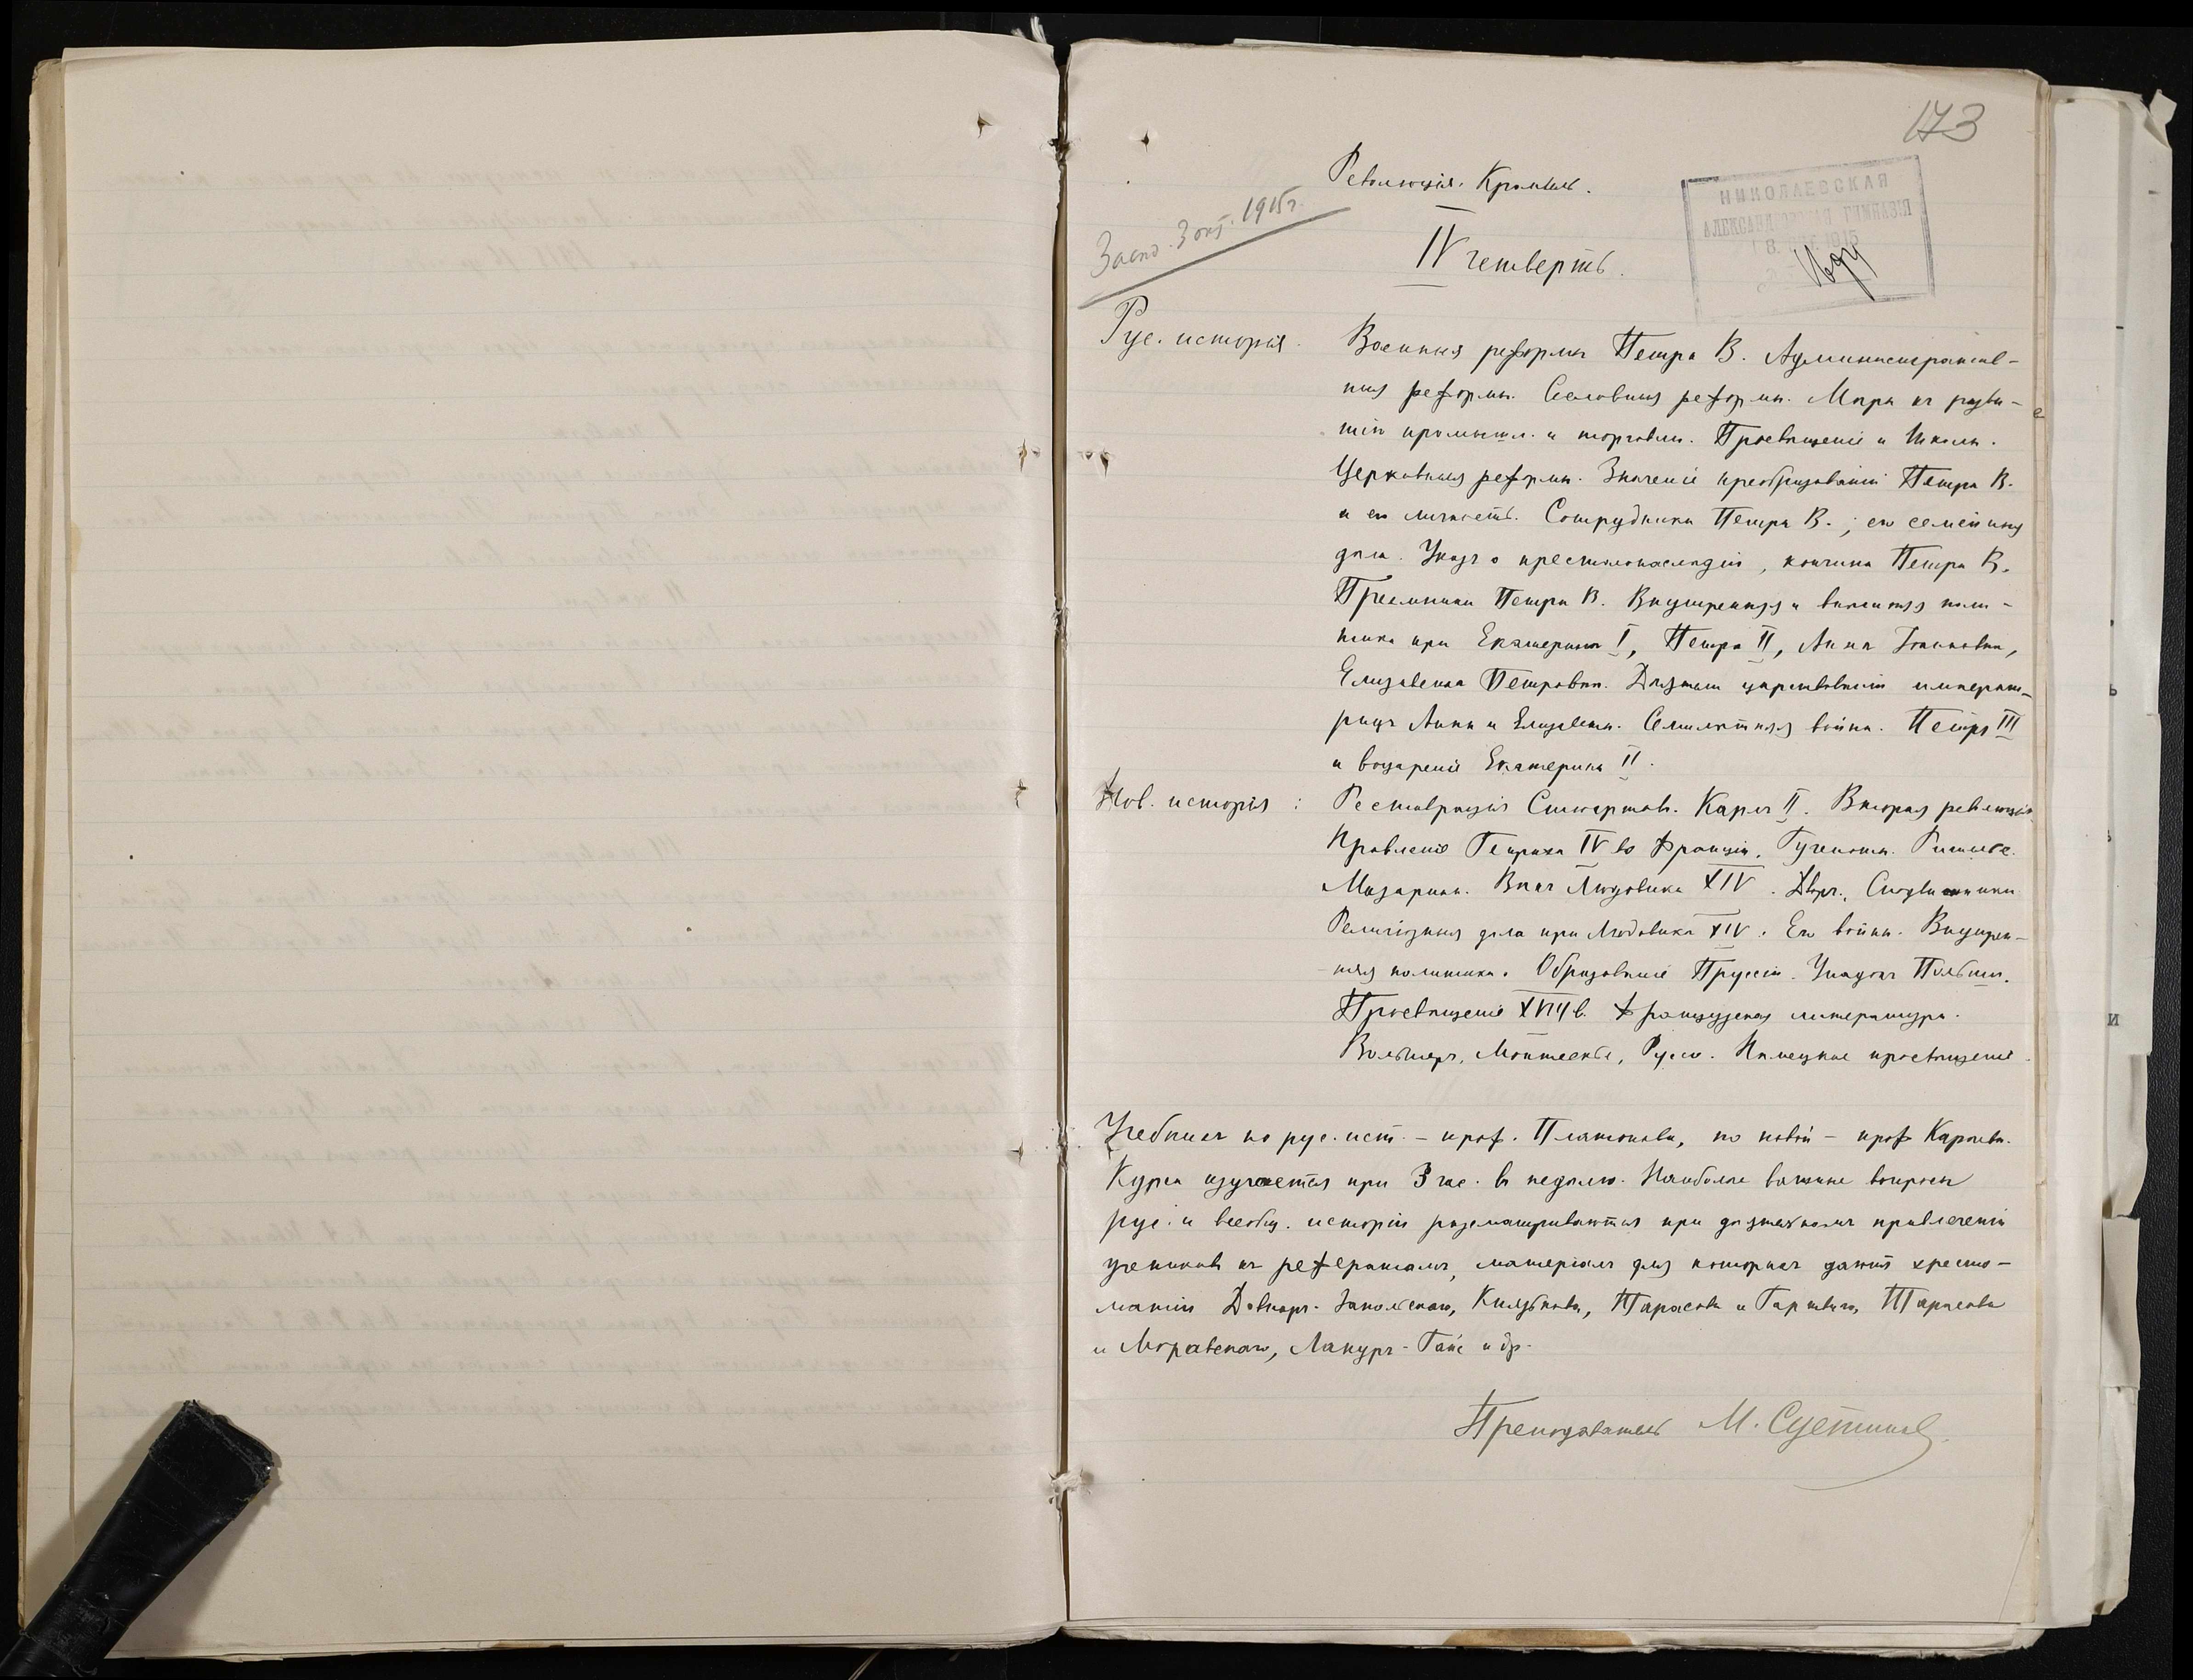 173
Революція. Кромвель.
НИКОЛАЕВСКАЯ
ГИМНАЗІЯ
Засѣд. 3 окт. 1915 г.
IV четверть.
Рус. исторія. Военныя реформы Петра В. Административ-
ныя реформы. Сословныя реформы. Мѣры къ разви-
тію промышл. и торговли. Просвѣщеніе и школы.
Церковныя реформы. Значеніе преобразованій Петра В.
и его личность. Сотрудники Петра В.; его семейныя
дѣла. Указъ о престолонаслѣдіи, кончина Петра В.
Преемники Петра В. Внутренняя и внѣшняя поли-
тика при Екатеринѣ I, Петрѣ II, Аннѣ Іоанновнѣ,
Елизаветѣ Петровнѣ. Дѣятели царствованій императ-
рицъ Анны и Елизаветы. Семилѣтняя война. Петръ III
и воцареніе Екатерины II.
Нов. исторія: Реставрація Стюартовъ. Карлъ II. Вторая революція.
Правленіе Генриха IV во Франціи. Гугеноты. Ришелье.
Мазарини. Вѣкъ Людовика XIV. Дворъ. Сподвижники.
Религіозныя дѣла при Людовикѣ XIV. Его войны. Внутрен-
няя политика. Образованіе Пруссіи. Упадокъ Польши.
Просвѣщеніе XVIII в. Французская литература.
Вольтеръ, Монтескье, Руссо. Нѣмецкое просвѣщеніе.
Учебникъ по рус. ист. – проф. Платонова, по новой – проф. Карѣева.
Курсъ изучается при 3 час. въ недѣлю. Наиболѣе важные вопросы
рус. и всеобщ. исторіи разсматриваются при дѣятельномъ привлеченіи
учениковъ къ рефератамъ, матеріалъ для которыхъ даютъ хресто-
матіи Довнаръ-Запольскаго, Князькова, Тарасова и Гартвига, Тарасова
и Моравскаго, Лакуръ-Гайе и др.
Преподаватель М. Суетинов